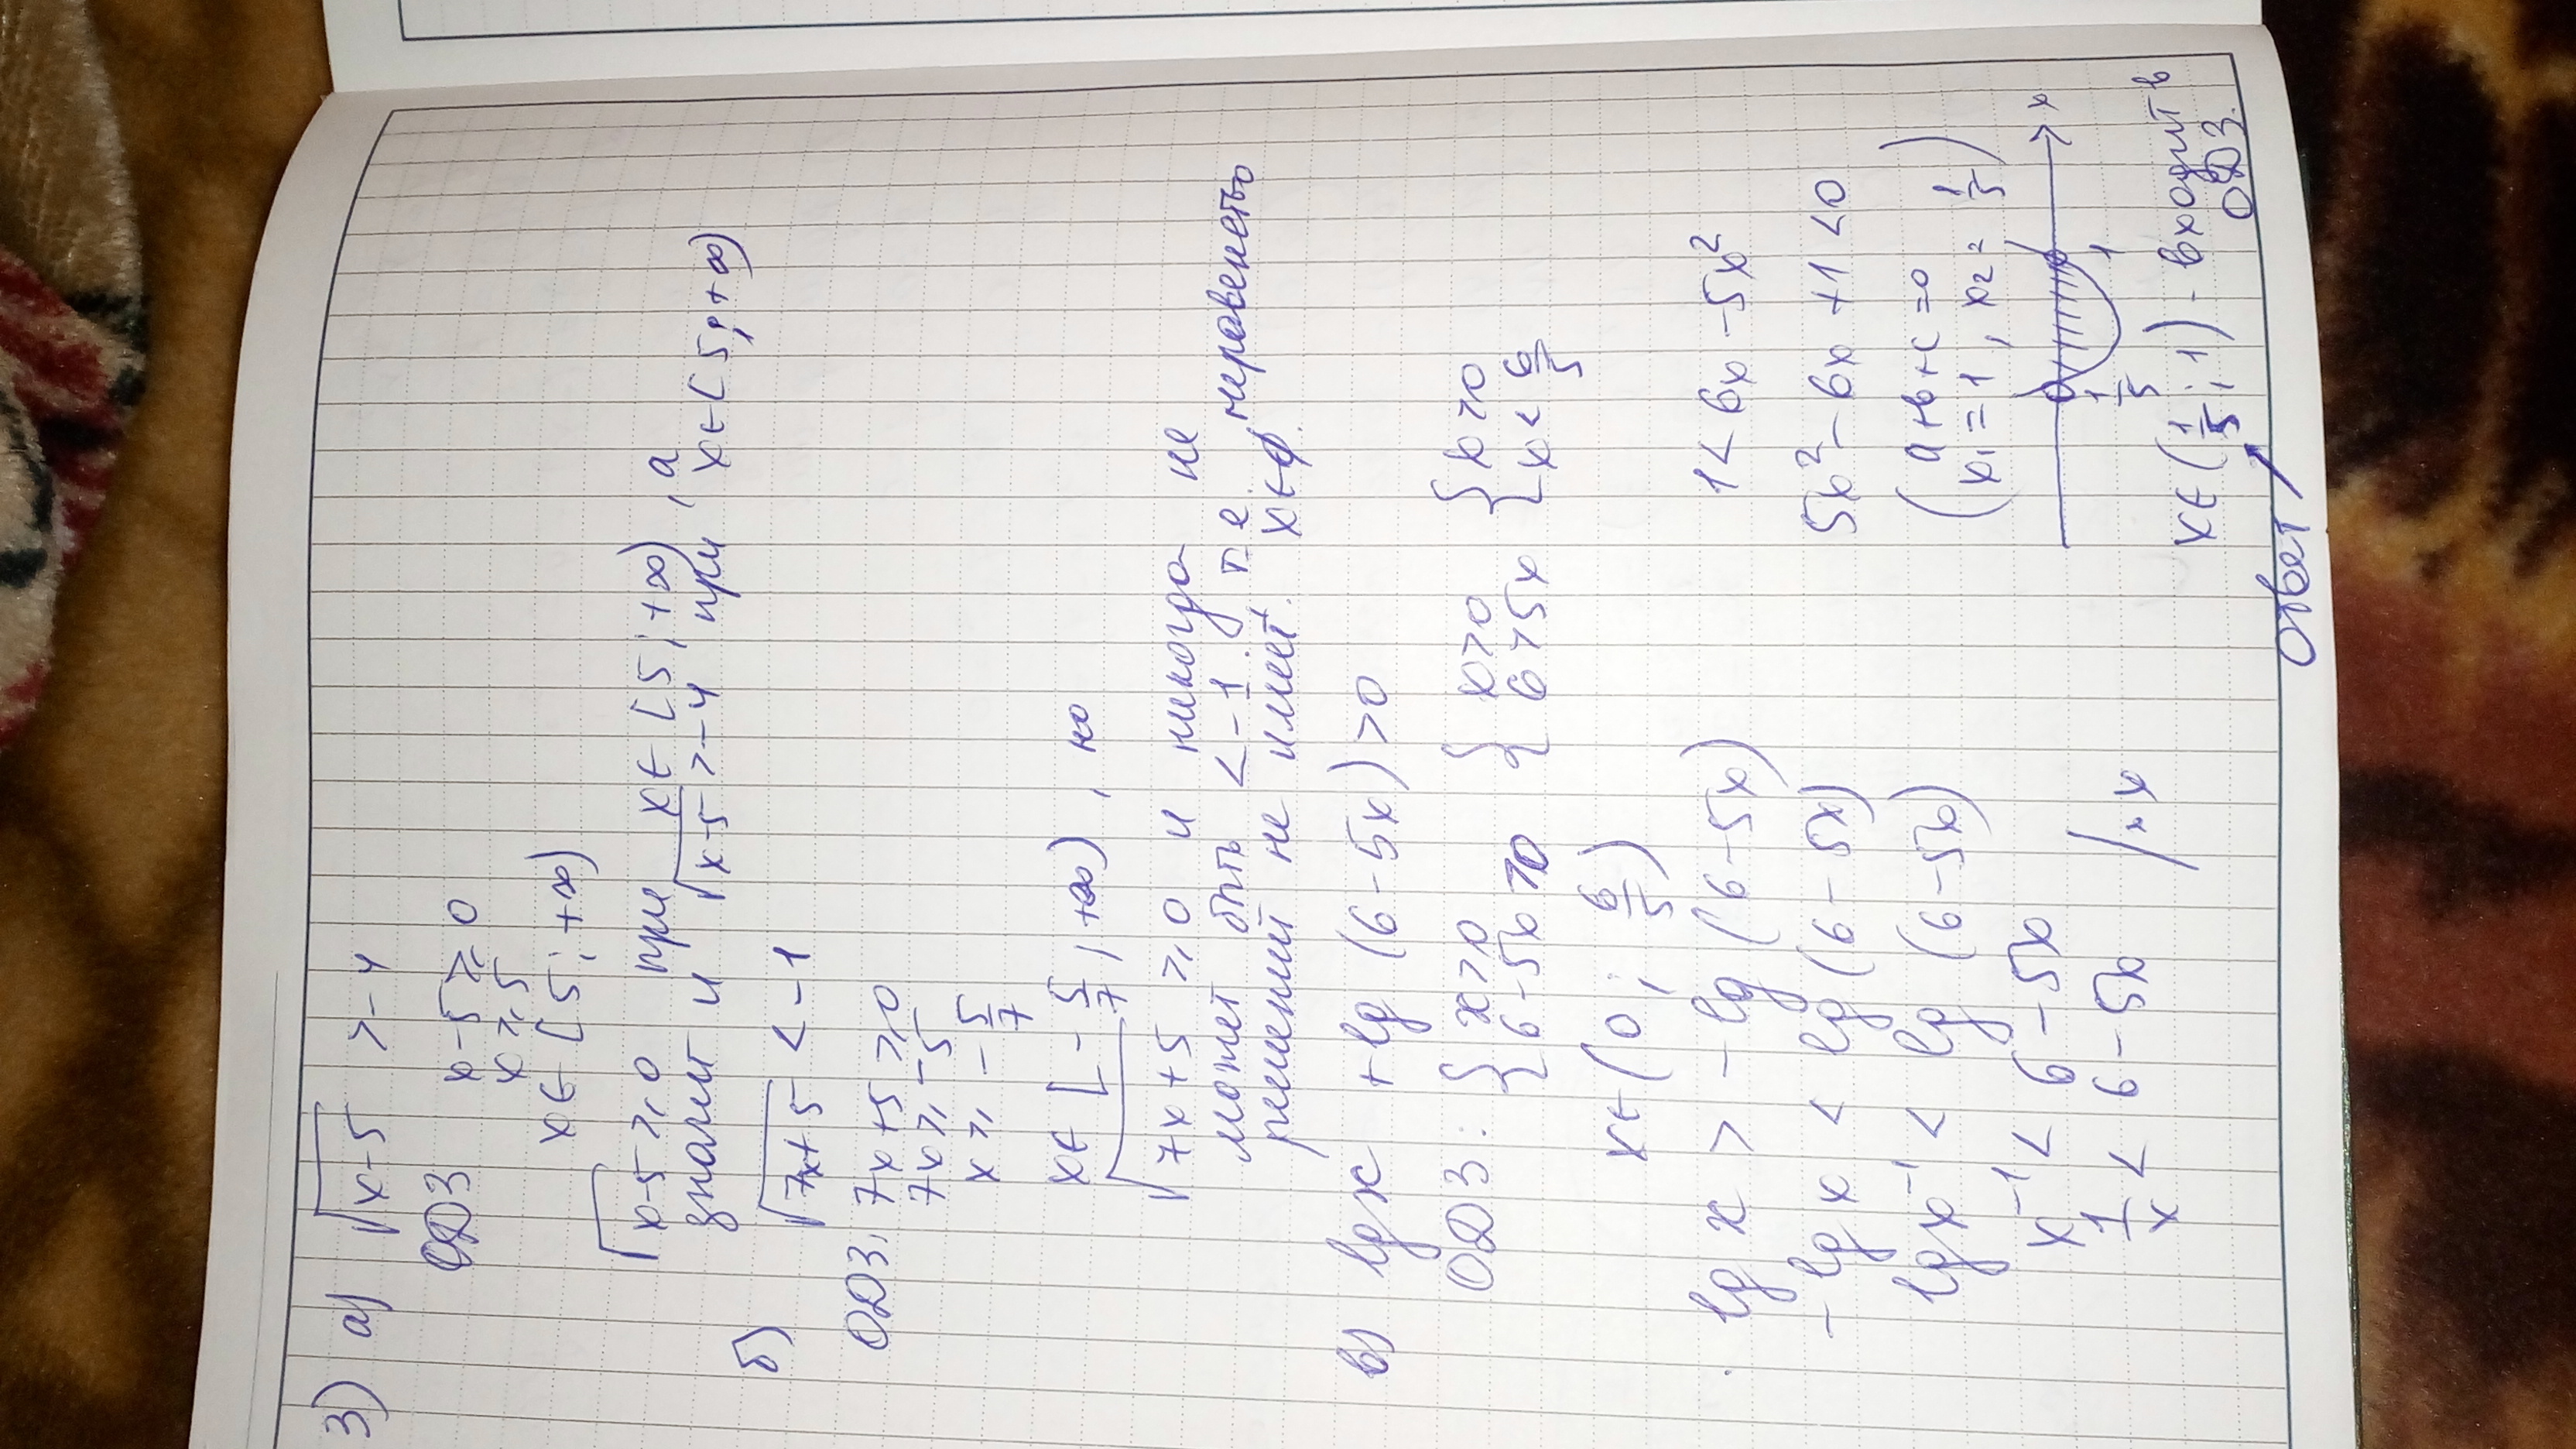 3) а) √x-5 > -4
ОДЗ x-5 ≥ 0
x ≥ 5
x ∈ [5; +∞)
√x-5 ≥ 0 при x ∈ [5; +∞), а
значит и √x-5 > -4 при x ∈ [5; +∞)
б) √7x+5 < -1
ОДЗ: 7x+5 ≥ 0
7x ≥ -5
x ≥ -5/7
x ∈ [-5/7; +∞), но
√7x+5 ≥ 0 и никогда не
может быть < -1. т.е. неравенство
решений не имеет. x ∈ ∅.
в) lg x + lg (6-5x) > 0
ОДЗ: { x > 0 { x > 0 { x > 0
6-5x > 0 6 > 5x x < 6/5
x ∈ (0; 6/5)
lg x > -lg (6-5x)
-lg x < lg (6-5x)
lg x⁻¹ < lg (6-5x)
x⁻¹ < 6-5x
1/x < 6-5x /*x
1 < 6x - 5x²
5x² - 6x + 1 < 0
( a+b+c=0
x₁ = 1, x₂ = 1/5 )
x
1/5 1
x ∈ (1/5; 1) - входит в
ОДЗ.
Ответ